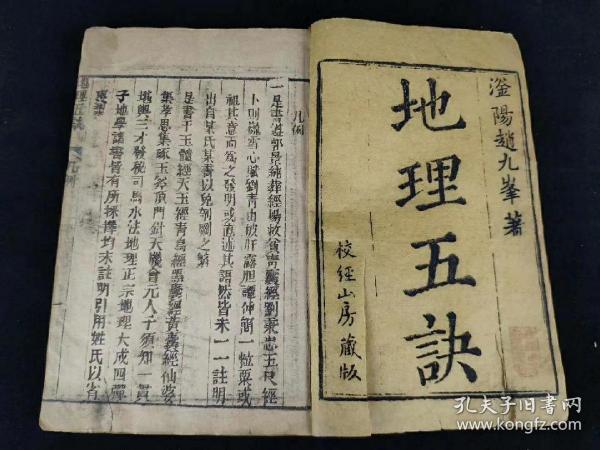 滏陽趙九峯著
地理五訣
校經山房藏版
凡例
一是書遵郭景純葬經楊救貧青囊經劉秉忠玉尺經
卜則巍雪心賦劉青田披肝露膽譚仲簡一粒粟或
祖其意而為之發明或直述其語然皆未一一註明
出自某氏某書以免剞劂之繁
是書于玉髓經天玉經青烏經黑囊經黃囊經仙婆
集孝思集琢玉斧頂門針天機會元人子須知一貫
堪輿三才發秘司馬水法地理正宗地理大成四彈
子地學諸書皆有所採擇均未註明引用姓氏以省
地理五訣
孔夫子旧书网
book.kongfz.com